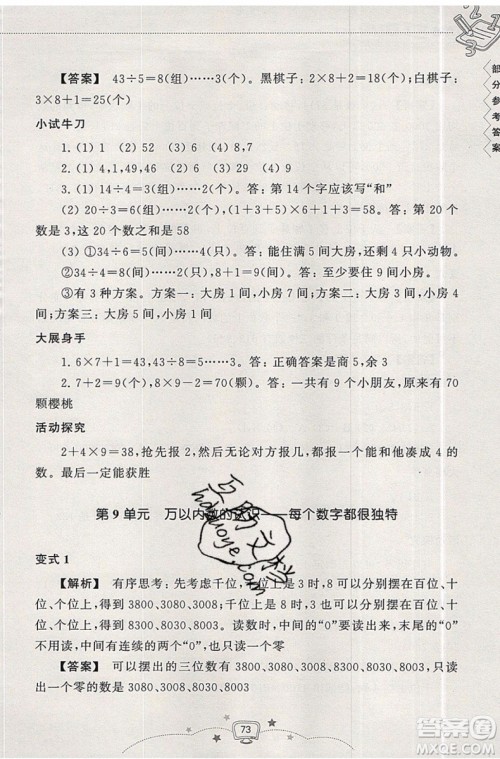 部分参考答案
【答案】 43÷5=8(组)……3(个)。黑棋子：2×8+2=18(个)；白棋子：
3×8+1=25(个)
小试牛刀
1. (1) 1 (2) 52 (3) 6 (4) 8,7
2. (1) 4,1,49,46 (2) 24 (3) 7 (4) 9
3. (1) 14÷4=3(组)……2(个)。答：第 14 个字应该写“和”
(2) 20÷3=6(组)……2(个)，(1+3+5)×6+1+3=58。答：第 20 个
数是 3，这 20 个数之和是 58
(3) ①34÷6=5(间)……4(只)。答：能住满 5 间大房，还剩 4 只小动物。
②34÷4=8(间)……2(只)，8+1=9(间)。答：至少要住 9 间小房。
③有 3 种方案。方案一：大房 1 间，小房 7 间；方案二：大房 3 间，小房 4
间；方案三：大房 5 间，小房 1 间
大展身手
1. 6×7+1=43，43÷8=5……3。答：正确答案是商 5，余 3
2. 7+2=9(个)，8×9−2=70(颗)。答：一共有 9 个小朋友，有 70
颗樱桃
活动探究
2+4×9=38，抢先报 2，然后无论对方报几，都报一个能和他凑成 4 的
数。最后一定能获胜
第 9 单元 万以内数的认识——每个数字都很独特
变式 1
【解析】 有序思考：先考虑千位，千位上是 3 时，8 可以分别摆在百位、十
位、个位上，得到 3800、3080、3008；千位上是 8 时，3 可以分别摆在百位、十
位、个位上，得到 8300、8030、8003。读数时，中间的“0”要读出来，末尾的“0”
不用读，中间有连续的两个“0”，也只读一个零
【答案】 可以摆出的三位数有 3800、3080、3008、8300、8030、8003，只读
出一个零的有 3080、3008、8030、8003
73
答案圈
MXQE.COM